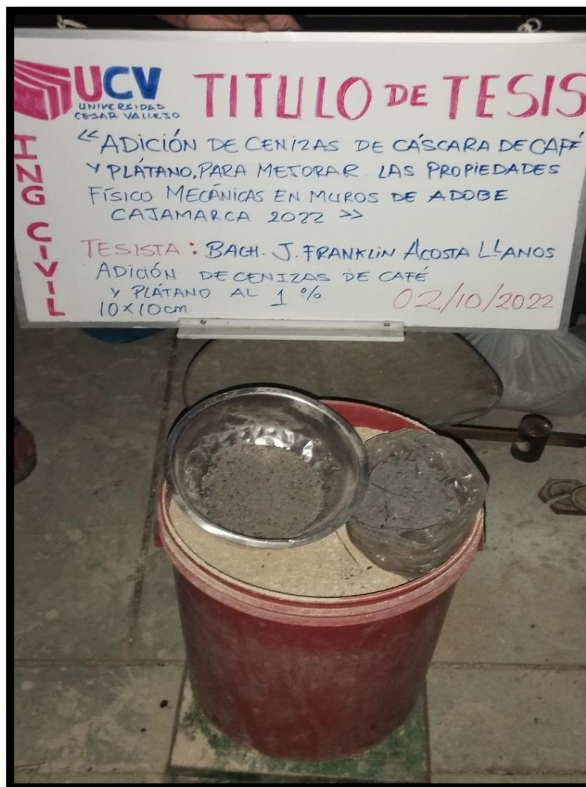 UCV
UNIVERSIDAD
CESAR VALLEJO
TITULO DE TESIS
ING CIVIL
"ADICIÓN DE CENIZAS DE CÁSCARA DE CAFÉ
Y PLÁTANO, PARA MEJORAR LAS PROPIEDADES
FÍSICO MECÁNICAS EN MUROS DE ADOBE
CAJAMARCA 2022 >>
TESISTA: BACH. J. FRANKLIN ACOSTA LLANOS
ADICIÓN DE CENIZAS DE CAFÉ
Y PLÁTANO AL 1 %
10x10cm.
02/10/2022